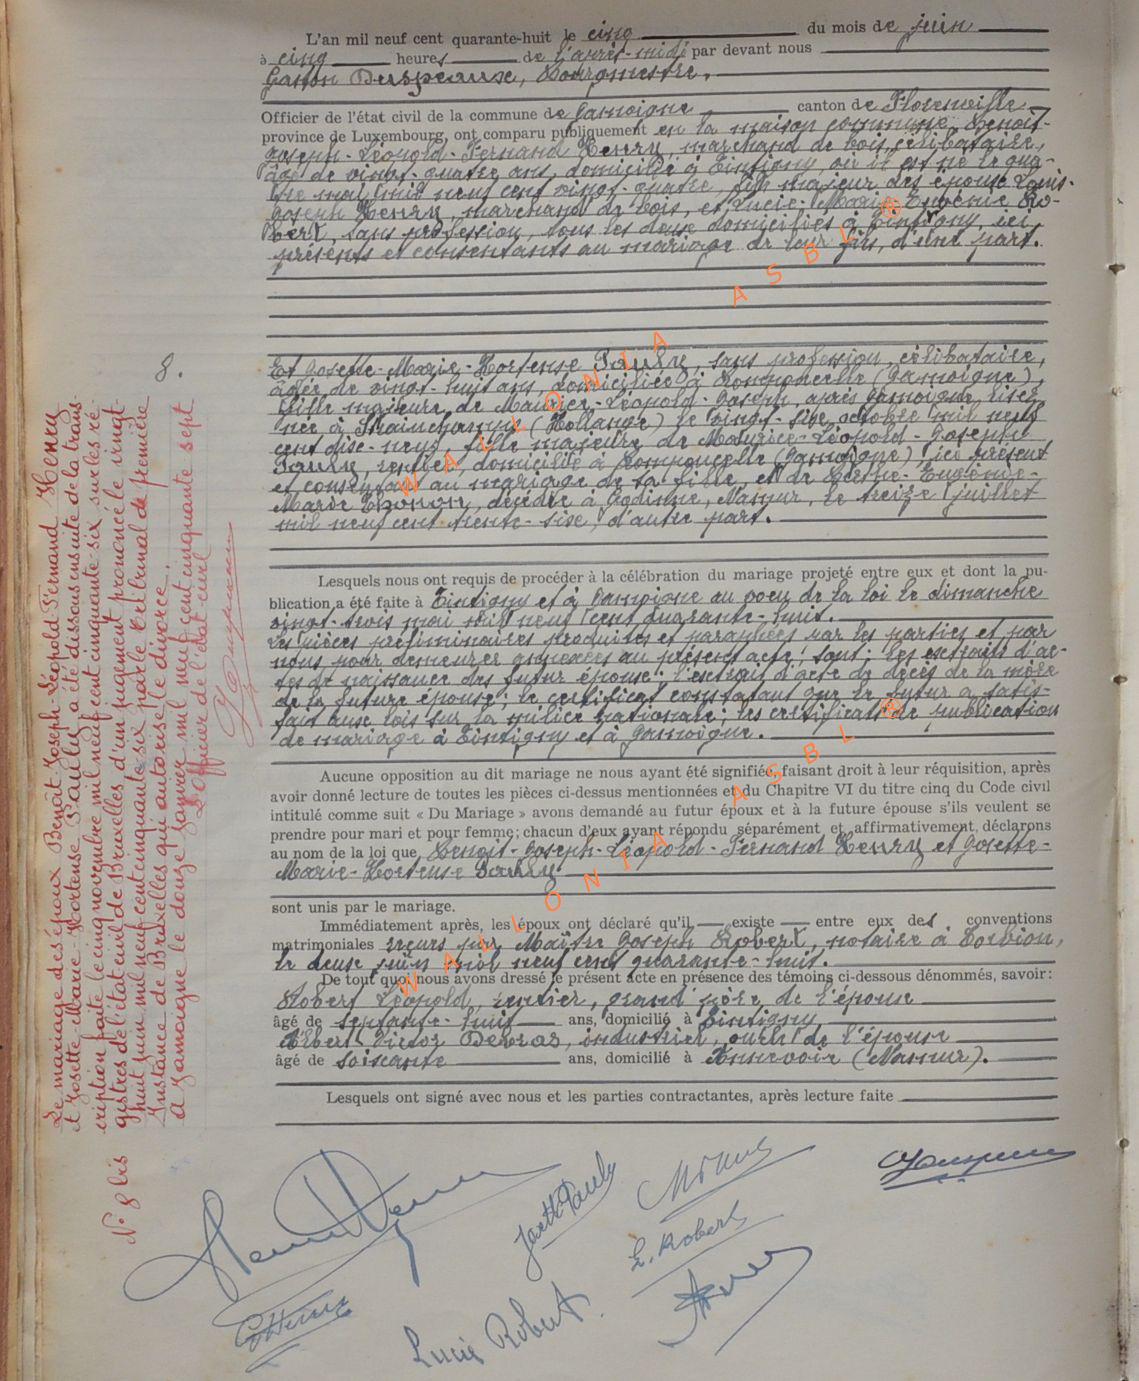 L'an mil neuf cent quarante-huit le cinq du mois de juin
à cinq heures de l'après-midi par devant nous
Gaston , Bourgmestre.
Officier de l'état civil de la commune de Jamoigne canton de Florenville
province de Luxembourg, ont comparu publiquement en la maison commune Benoit-
Joseph-Léopold-Fernand Henry, marchand de bois, célibataire,
âgé de vingt-quatre ans, domicilié à Tintigny, où il est né le qua-
tre mai mil neuf cent vingt-quatre, fils majeur des époux Louis-
Joseph Henry, marchand de bois, et Lucie-Marie-Eugénie Ro-
bert, sans profession, tous les deux domiciliés à Tintigny, ici
présents et consentants au mariage de leur fils, d'une part.
8.
Et Josette-Marie-Hortense Pauly, sans profession, célibataire,
âgée de vingt-huit ans, domiciliée à Romponcelle (Jamoigne),
fille majeure de Maurice-Léopold-Joseph, après Jamoigne,
née à (Hollange) le vingt-six octobre mil neuf
cent dix-neuf, fille majeure de Maurice-Léopold-Joseph
Pauly, rentier, domicilié à Romponcelle (Jamoigne) ici présent
et consentant au mariage de sa fille, et de Eugénie-
Marie , décédée à Godinne, Namur, le treize juillet
mil neuf cent trente-six, d'autre part.
Lesquels nous ont requis de procéder à la célébration du mariage projeté entre eux et dont la pu-
blication a été faite à Tintigny et à Jamoigne au vœu de la loi le dimanche
vingt-trois mai mil neuf cent quarante-huit.
Les pièces préliminaires produites et paraphées par les parties et par
nous pour demeurer annexées au présent acte, sont: les extraits d'ac-
tes de naissance des futur époux; l'extrait d'acte de décès de la mère
de la future épouse; le certificat constatant que le futur a satis-
fait aux lois sur la milice nationale; les certificats de publication
de mariage à Tintigny et à Jamoigne.
Aucune opposition au dit mariage ne nous ayant été signifiée, faisant droit à leur réquisition, après
avoir donné lecture de toutes les pièces ci-dessus mentionnées et du Chapitre VI du titre cinq du Code civil
intitulé comme suit « Du Mariage » avons demandé au futur époux et à la future épouse s'ils veulent se
prendre pour mari et pour femme; chacun d'eux ayant répondu séparément et affirmativement, déclarons
au nom de la loi que Benoit-Joseph-Léopold-Fernand Henry et Josette-
Marie-Hortense Pauly.
sont unis par le mariage.
Immédiatement après, les époux ont déclaré qu'il existe entre eux des conventions
matrimoniales reçues par Maître Joseph Robert, notaire à ,
le deux juin mil neuf cent quarante-huit.
De tout quoi nous avons dressé le présent acte en présence des témoins ci-dessous dénommés, savoir:
Robert Léopold, rentier, grand'père de l'époux
âgé de septante-huit ans, domicilié à Tintigny
Albert Victor , industriel, oncle de l'épouse
âgé de soixante ans, domicilié à Annevoie (Namur).
Lesquels ont signé avec nous et les parties contractantes, après lecture faite
Josette Pauly
L. Robert
Lucie Robert
N° 8 bis
Le mariage des époux Benoît-Joseph-Léopold-Fernand Henry
et Josette-Marie-Hortense Pauly a été dissous ensuite de la trans-
cription faite le cinq novembre mil neuf cent cinquante-six sur les re-
gistres de l'état civil de Bruxelles d'un jugement prononcé le vingt-
huit juin mil neuf cent cinquante-six par le tribunal de première
Instance de Bruxelles qui autorise le divorce.
à Jamoigne le douze janvier mil neuf cent cinquante sept
L'officier de l'état civil
WALLONIA ASBL ®
WALLONIA ASBL ®